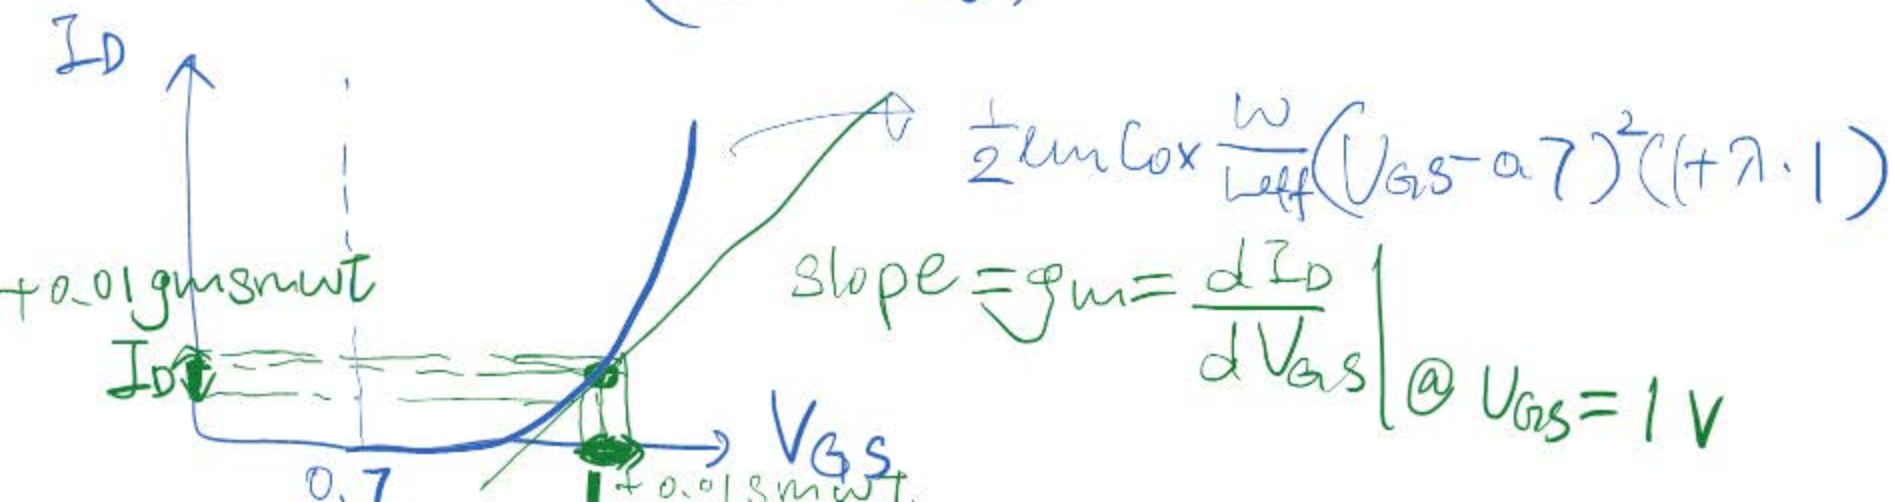 I_D
½ μn Cox W/Leff (VGS-0.7)²(1+λ·1)
+0.01 gm sinωt
slope = gm = dI_D/dVGS | @ VGS = 1 V
I_D
VGS
0.7
1 + 0.01 sinωt